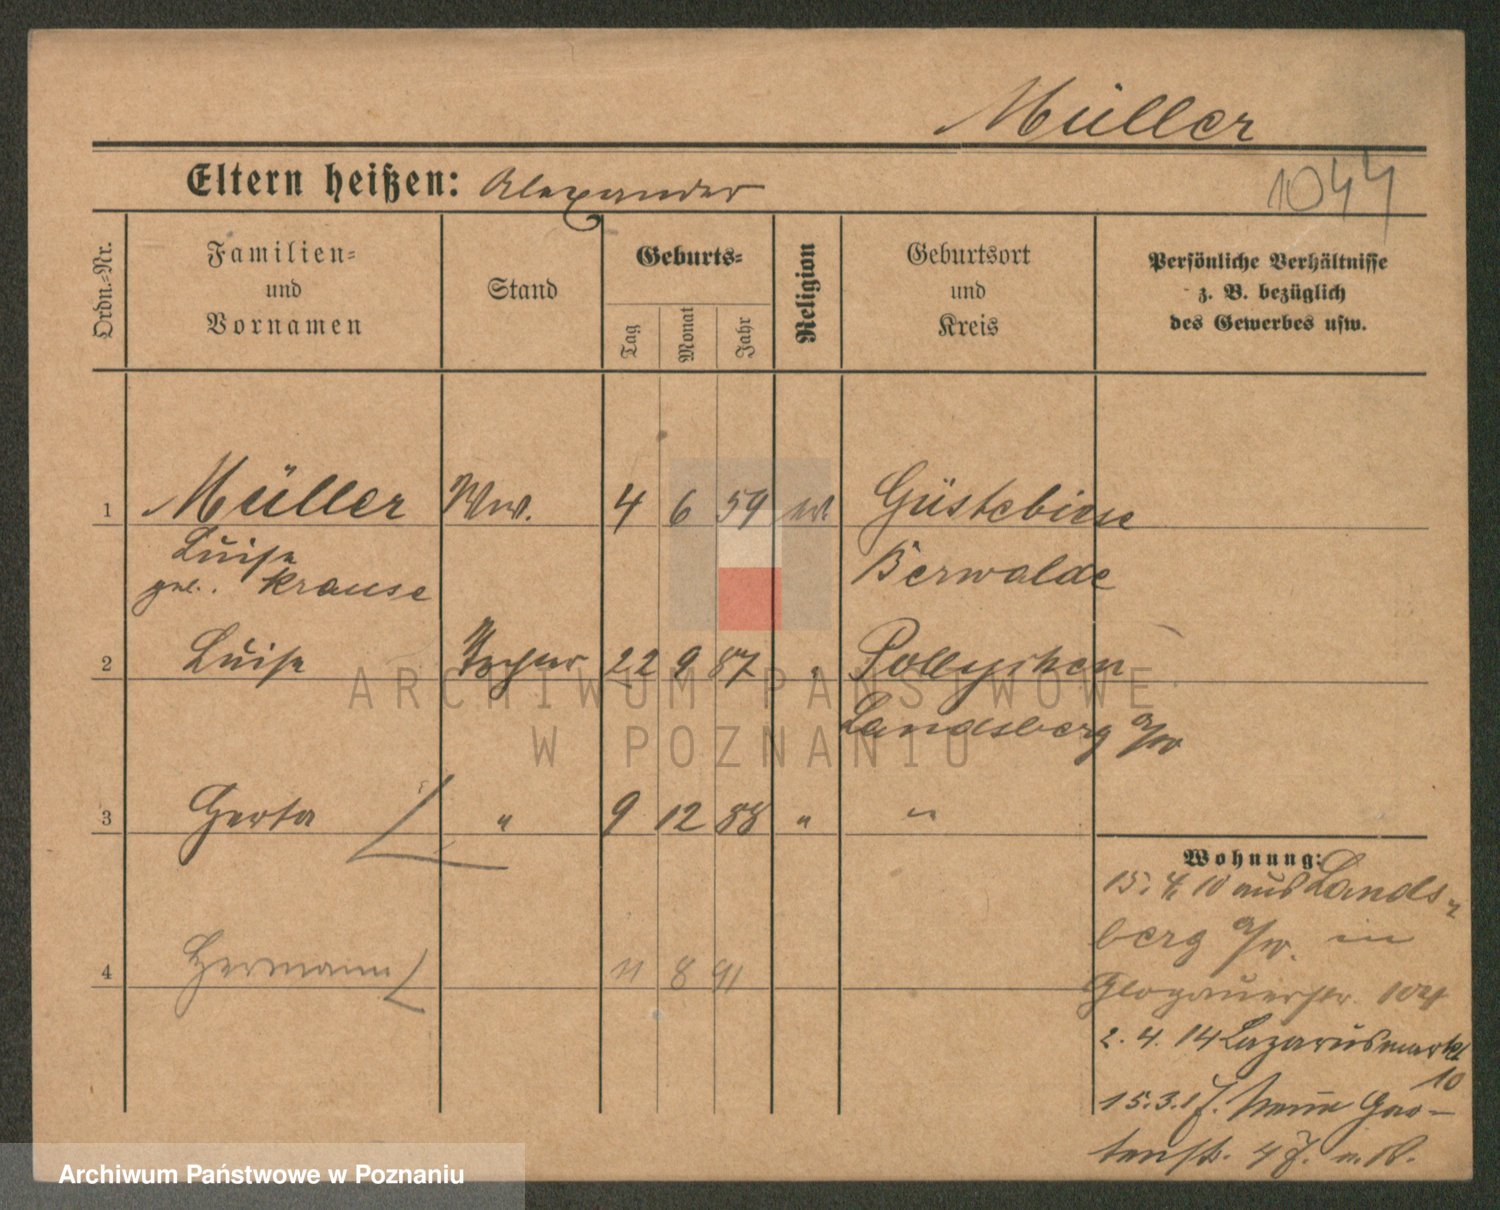 Müller
Eltern heißen: Alexander
1044
Ordn.-Nr.
Familien-
und
Vornamen
Stand
Geburts-
Tag
Monat
Jahr
Religion
Geburtsort
und
Kreis
Persönliche Verhältnisse
z. B. bezüglich
des Gewerbes usw.
1 Müller Ww. 4 6 59 ev. Güstebiese
Luise
geb. Krause Berwalde
2 Luise Tochter 22 9 87 " Pollychen
Landsberg a/W
3 Herta " 9 12 88 " "
4 Hermann 11 8 91
Wohnung:
15. 4. 10 aus Lands-
berg a/W. in
Glogauerstr. 104
2. 4. 14 Lazarusmarkt
10
15. 3. 17. Neue Gar-
tenstr.
ARCHIWUM PAŃSTWOWE
W POZNANIU
Archiwum Państwowe w Poznaniu